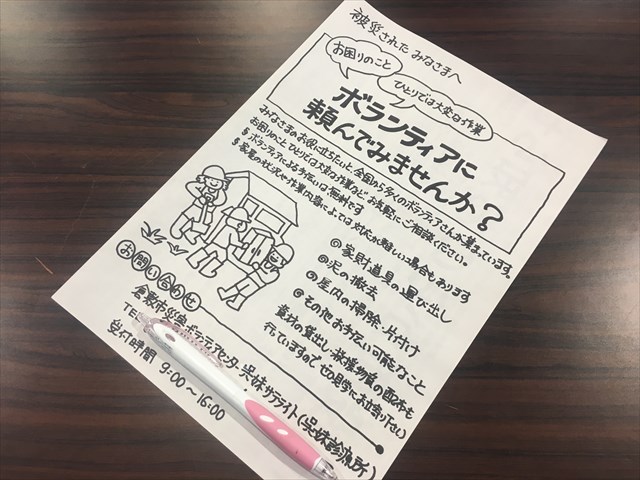 被災された みなさまへ
お困りのこと
ひとりでは大変な作業
ボランティアに
頼んでみませんか?
みなさまのお役に立ちたいと、全国から多くのボランティアさんが集まっています。
お困りのこと ひとりでは大変な作業など お気軽に ご相談ください。
§ ボランティアによるお手伝いは無料です
§ 家屋の状況や作業内容によっては 対応が難しい場合もあります
◎ 家財道具の運び出し
◎ 泥の撤去
◎ 屋内の掃除・片付け
◎ その他お手伝い可能なこと
資材の貸出し・救援物資の配布も
行っていますので、ぜひ見学にお立寄り下さい
お問い合わせ
倉敷市災害ボランティアセンター 呉妹サテライト(呉妹診療所)
TEL
受付時間 9:00〜16:00